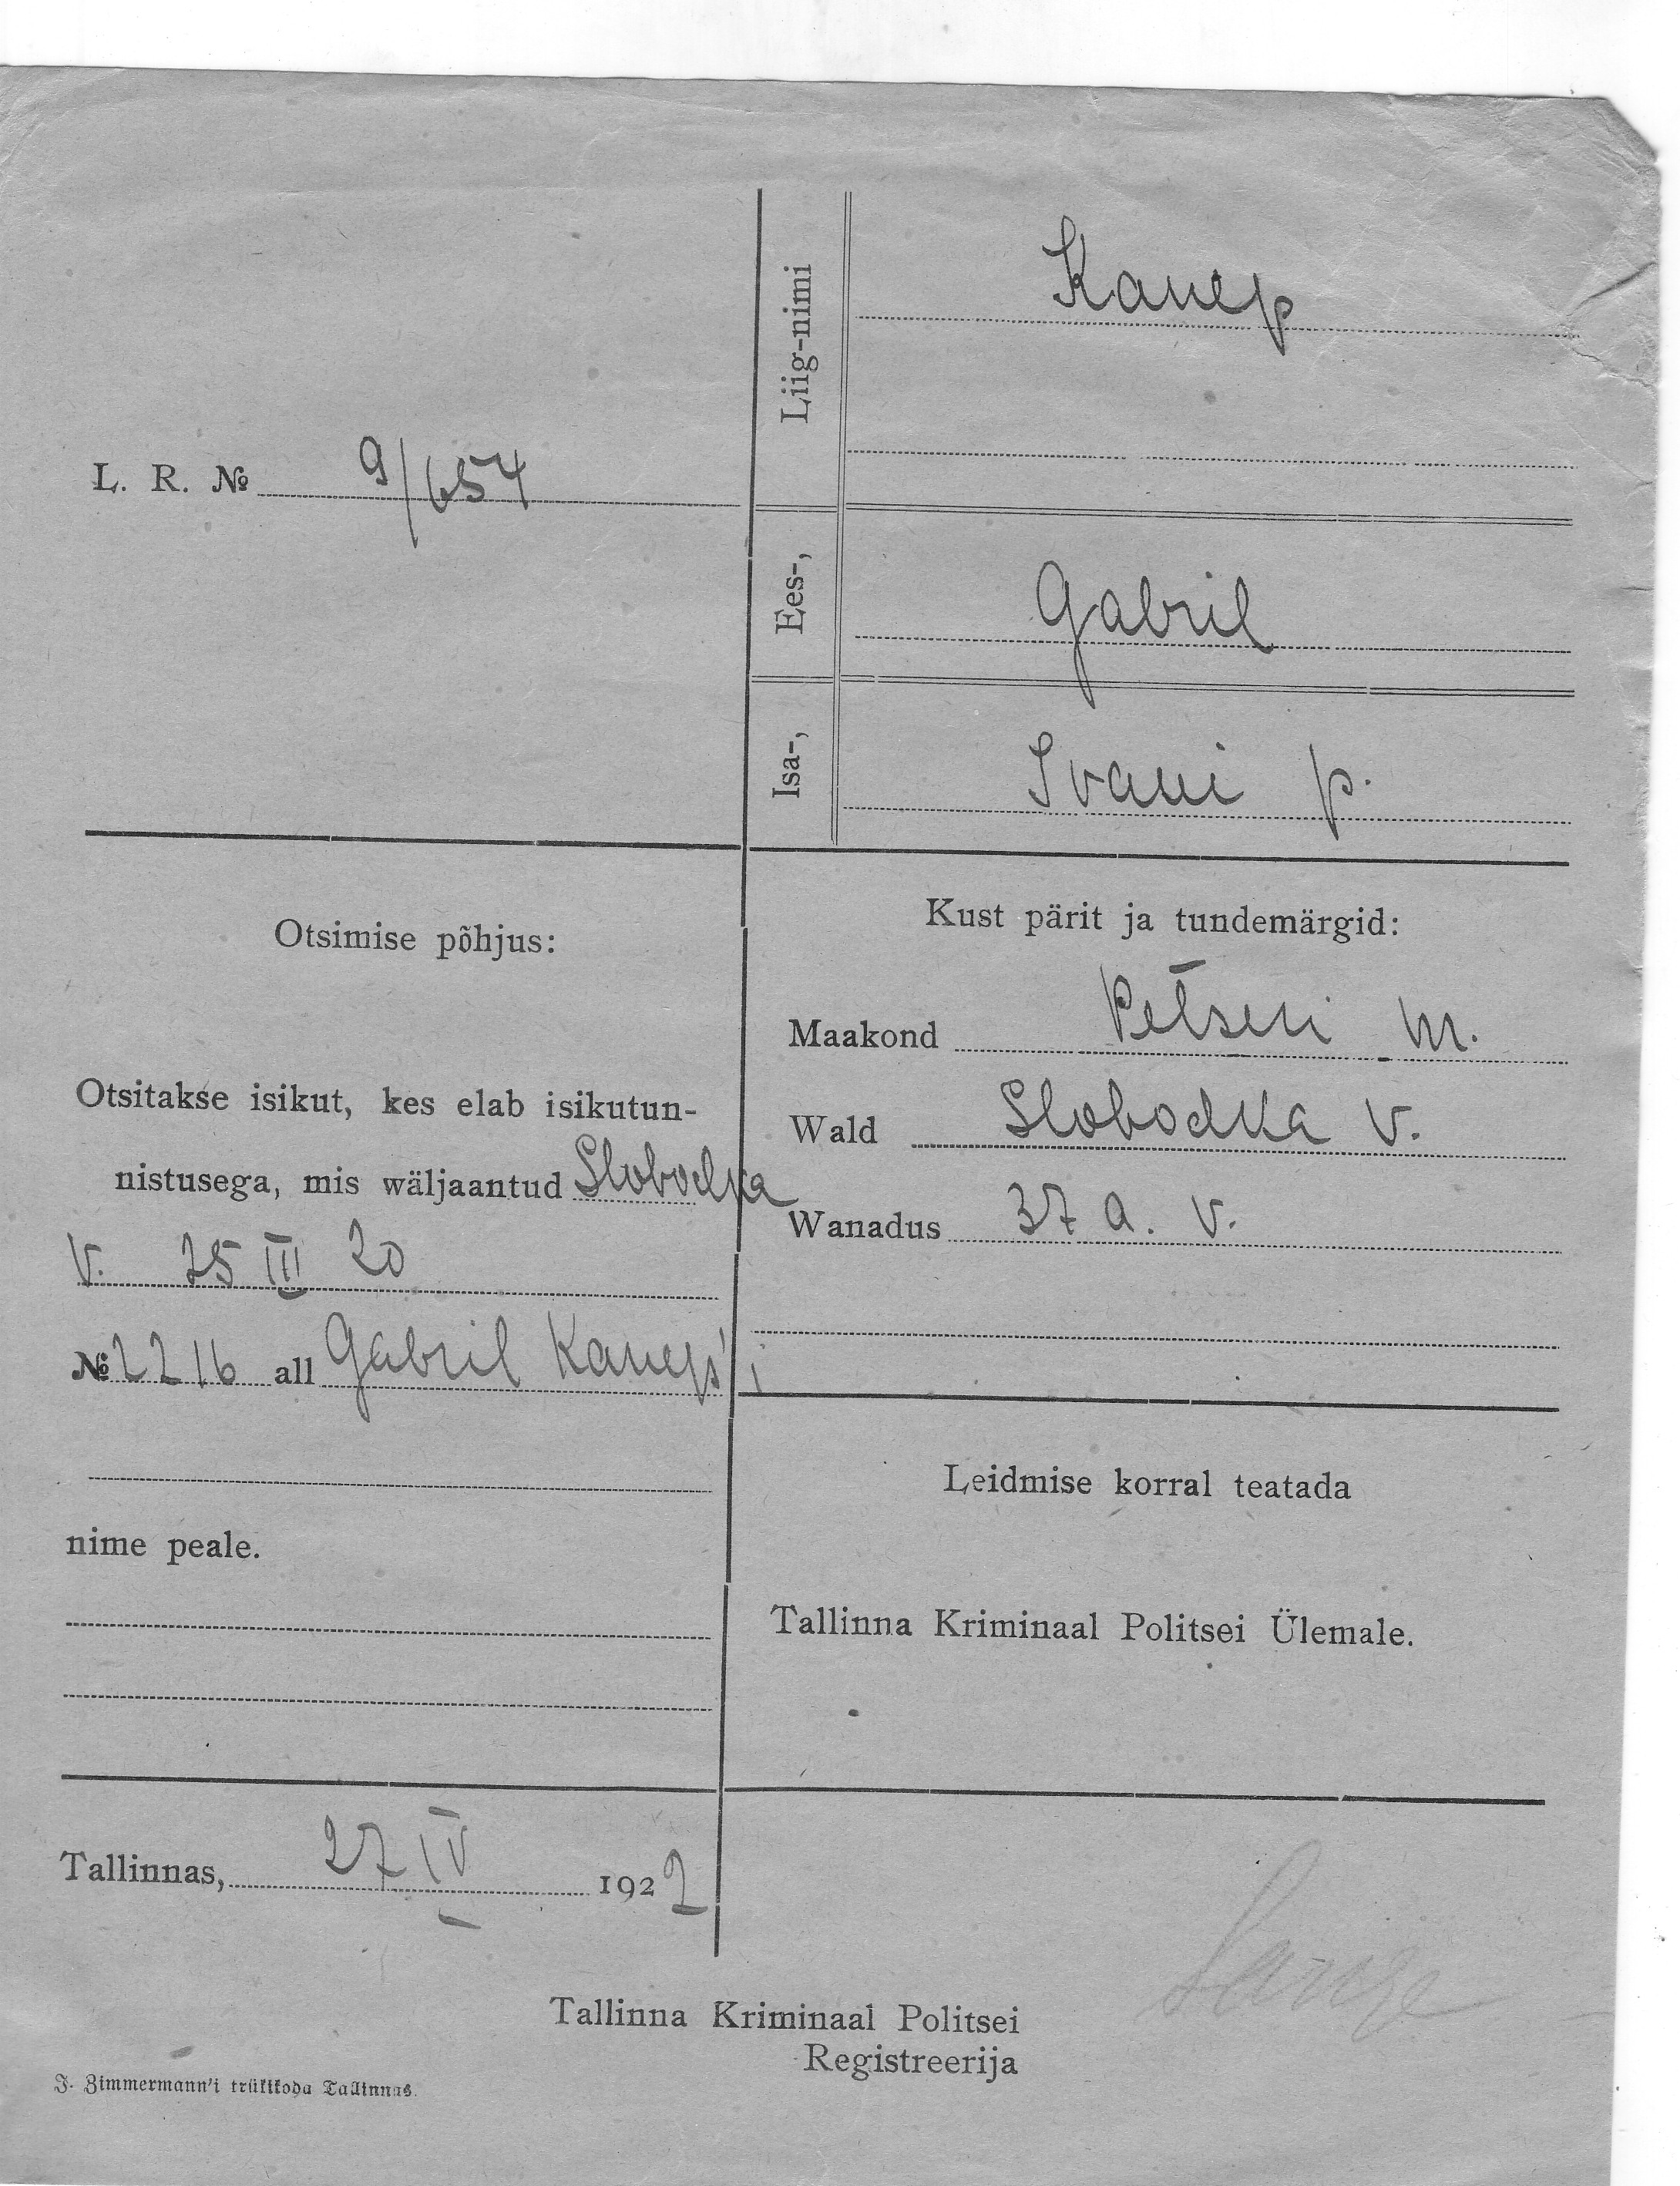 L. R. № 9/654
Liig-nimi Kanep
Ees-, Gabril
Isa-, Ivani p.
Otsimise põhjus:
Otsitakse isikut, kes elab isikutun-
nistusega, mis wäljaantud Slobodka
V. 25 III 20
№ 2216 all Gabril Kanep'i
nime peale.
Kust pärit ja tundemärgid:
Maakond Petseri m.
Wald Slobodka v.
Wanadus 37 a. v.
Leidmise korral teatada
Tallinna Kriminaal Politsei Ülemale.
Tallinnas, 27 IV 1922
Tallinna Kriminaal Politsei
Registreerija
J. Zimmermann'i trükikoda Tallinnas.